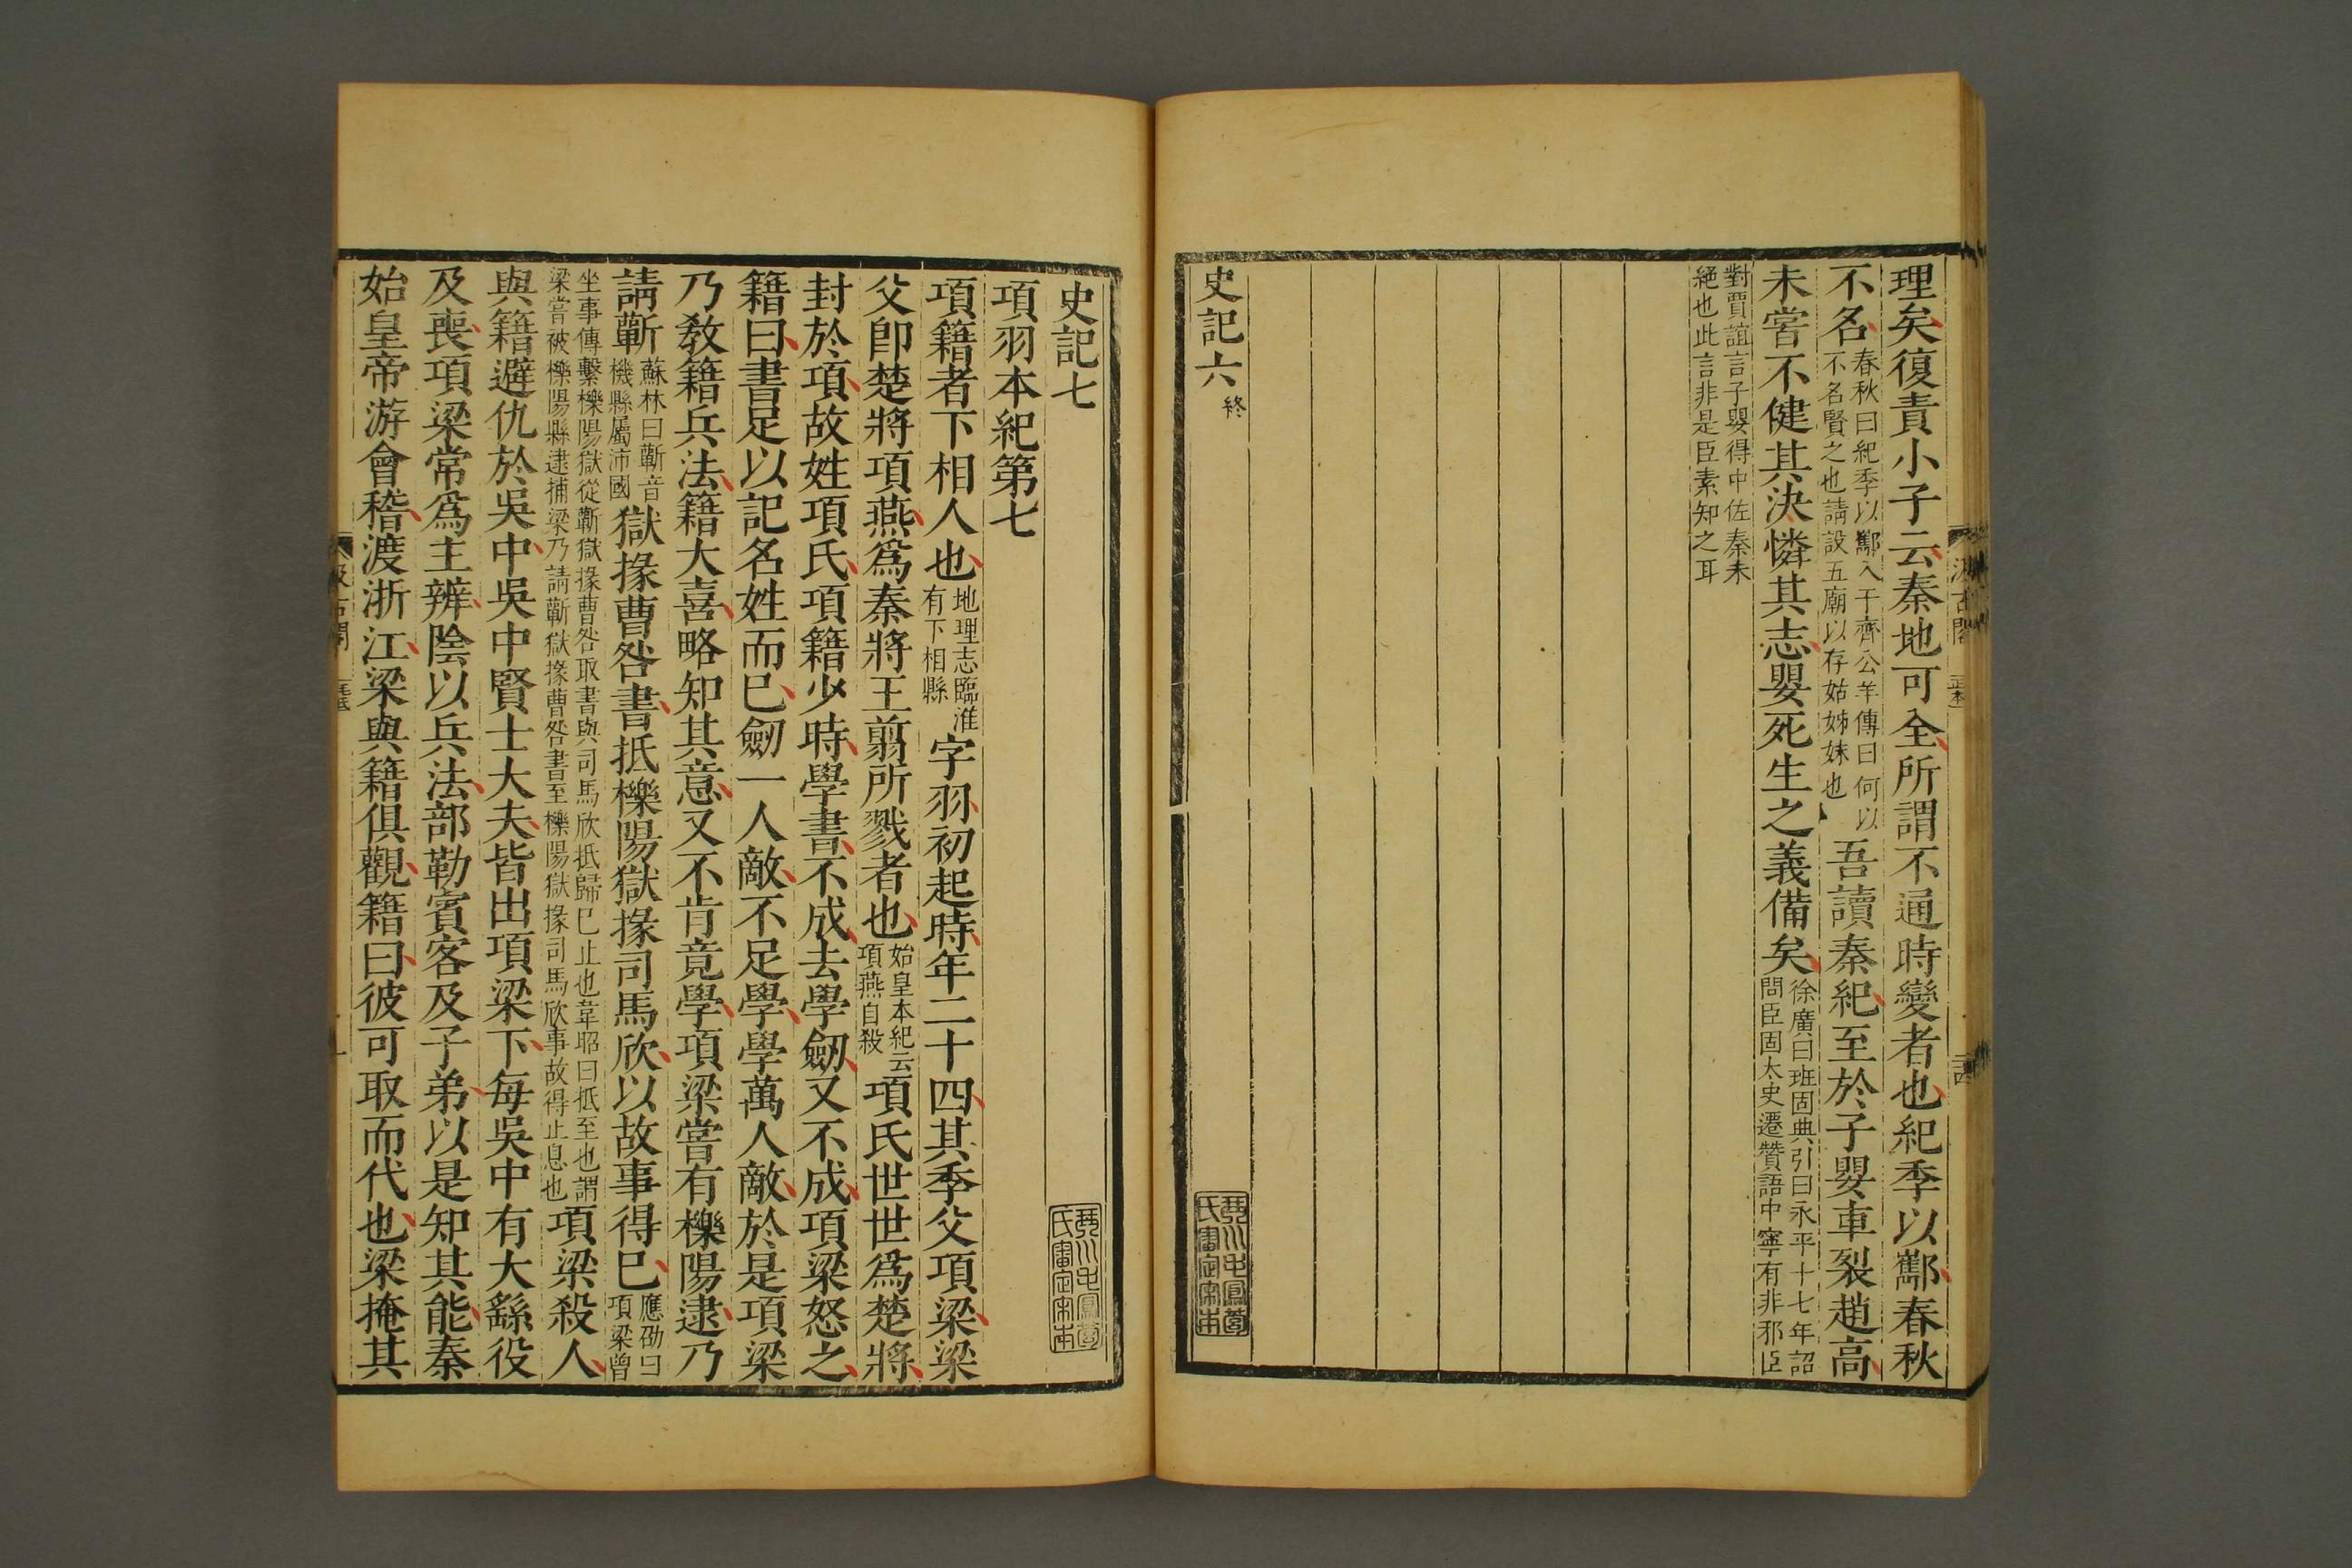 理矣復責小子云秦地可全所謂不通時變者也紀季以酅春秋
不名春秋曰紀季以酅入于齊公羊傳曰何以不名賢之也請設五廟以存姑姊妹也吾讀秦紀至於子嬰車裂趙高
未嘗不健其決憐其志嬰死生之義備矣徐廣曰班固典引曰永平十七年詔問臣固太史遷贊語中寧有非邪臣
對賈誼言子嬰得中佐秦未絕也此言非是臣素知之耳
史記六終
史記七
項羽本紀第七
項籍者下相人也地理志臨淮有下相縣字羽初起時年二十四其季父項梁梁
父卽楚將項燕爲秦將王翦所戮者也始皇本紀云項燕自殺項氏世世爲楚將
封於項故姓項氏項籍少時學書不成去學劒又不成項梁怒之
籍曰書足以記名姓而已劒一人敵不足學學萬人敵於是項梁
乃敎籍兵法籍大喜略知其意又不肯竟學項梁嘗有櫟陽逮乃
請蘄蘇林曰蘄音機縣屬沛國獄掾曹咎書抵櫟陽獄掾司馬欣以故事得已應劭曰項梁曾
坐事傳繫櫟陽獄從蘄獄掾曹咎取書與司馬欣抵歸已止也韋昭曰抵至也謂梁嘗被櫟陽縣逮捕梁乃請蘄獄掾曹咎書至櫟陽獄掾司馬欣事故得止息也項梁殺人
與籍避仇於吳中吳中賢士大夫皆出項梁下每吳中有大繇役
及喪項梁常爲主辨陰以兵法部勒賓客及子弟以是知其能秦
始皇帝游會稽渡浙江梁與籍俱觀籍曰彼可取而代也梁掩其